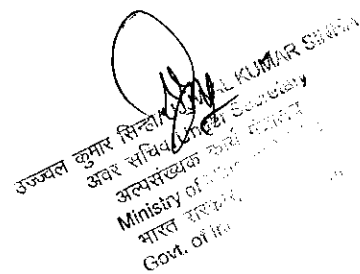 उज्ज्वल कुमार सिन्हा/UJJWAL KUMAR SINHA
अवर सचिव/Under Secretary
अल्पसंख्यक कार्य मंत्रालय
Ministry of
भारत सरकार
Govt. of